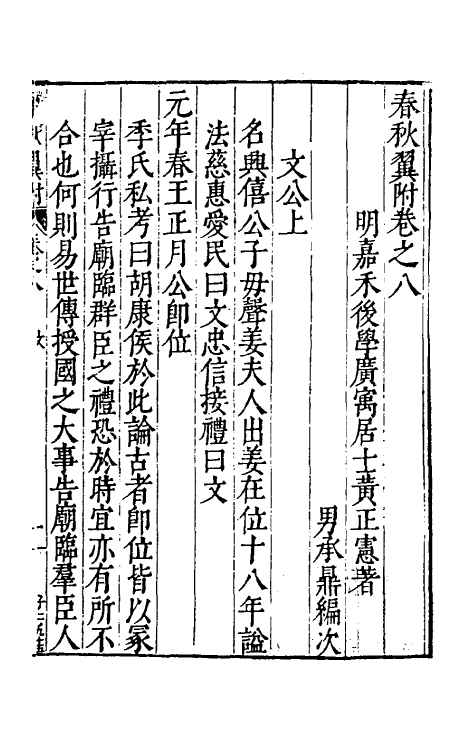 春秋翼附卷之八
明嘉禾後學廣寓居士黃正憲著
男承鼎編次
文公上
名興僖公子毋聲姜夫人出姜在位十八年謚
法慈惠愛民曰文忠信接禮曰文
元年春王正月公即位
季氏私考曰胡康侯於此論古者即位皆以冢
宰攝行告廟臨群臣之禮恐於時宜亦有所不
合也何則易世傳授國之大事告廟臨羣臣人